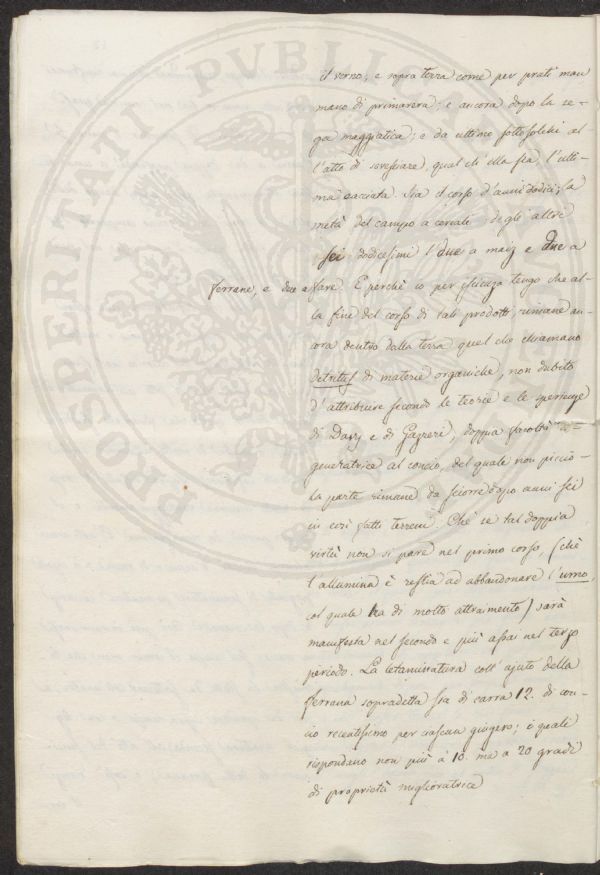 il verno; e sopra terra come per prati man
mano di primavera; e ancora dopo la se-
ga maggiatica; e da ultimo sottosolchi al-
l'atto di rovesciare, qual ch'ella sia, l'ulti-
ma cacciata. Sia il corso d'anni dodici; la
metà del campo a cereali degli altri
sei dodicesimi l'due a maiz e due a
ferrane, e due a fave. E perchè io per fidanza tengo che al-
la fine del corso di tali prodotti, rimane an-
cora dentro dalla terra quel che chiamano
detritus di materie organiche, non dubito
d'attribuire secondo le teorie e le sperienze
di Davy e di Gazzeri, doppia facoltà
generatrice al concio, del quale non piccio-
la parte rimane da sciorre dopo anni sei
in così fatti terreni. Chè se tal doppia
virtù non si pare nel primo corso, (chè
l'allumina è restia ad abbandonare l'umo,
col quale ha di molto attraimento) sarà
manifesta nel secondo e più assai nel terzo
periodo. La letaminatura coll'ajuto della
ferrana sopradetta sia di carra 12. di con-
cio recentissimo per ciascun giugero; i quali
rispondano non più à 10. ma a 20 gradi
di proprietà miglioratrice
PROSPERITATI PVBLICAE